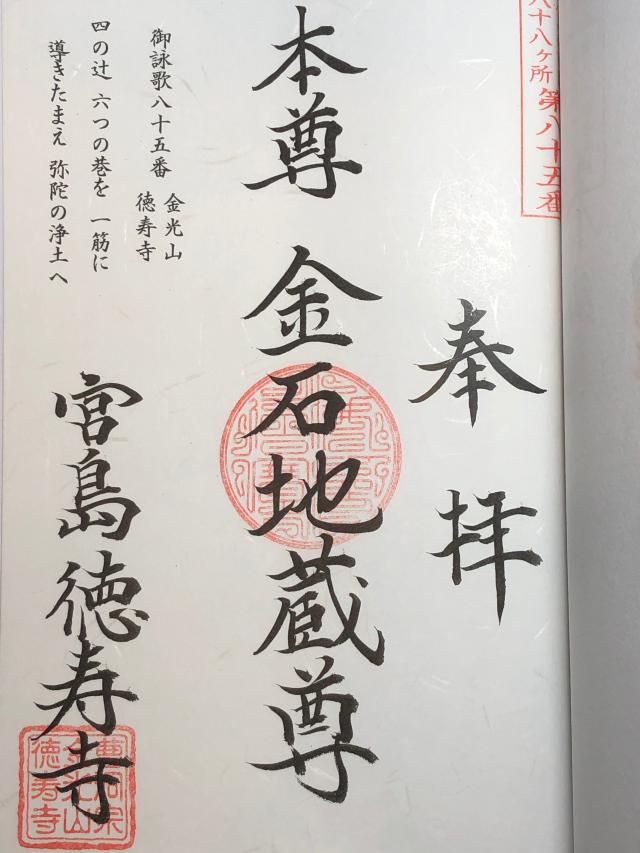 八十八ヶ所第八十五番
奉拝
本尊 金石地蔵尊
御詠歌八十五番 金光山
徳寿寺
四の辻 六つの巷を 一筋に
導きたまえ 弥陀の浄土へ
宮島徳寿寺
曹洞宗
金光山
徳寿寺